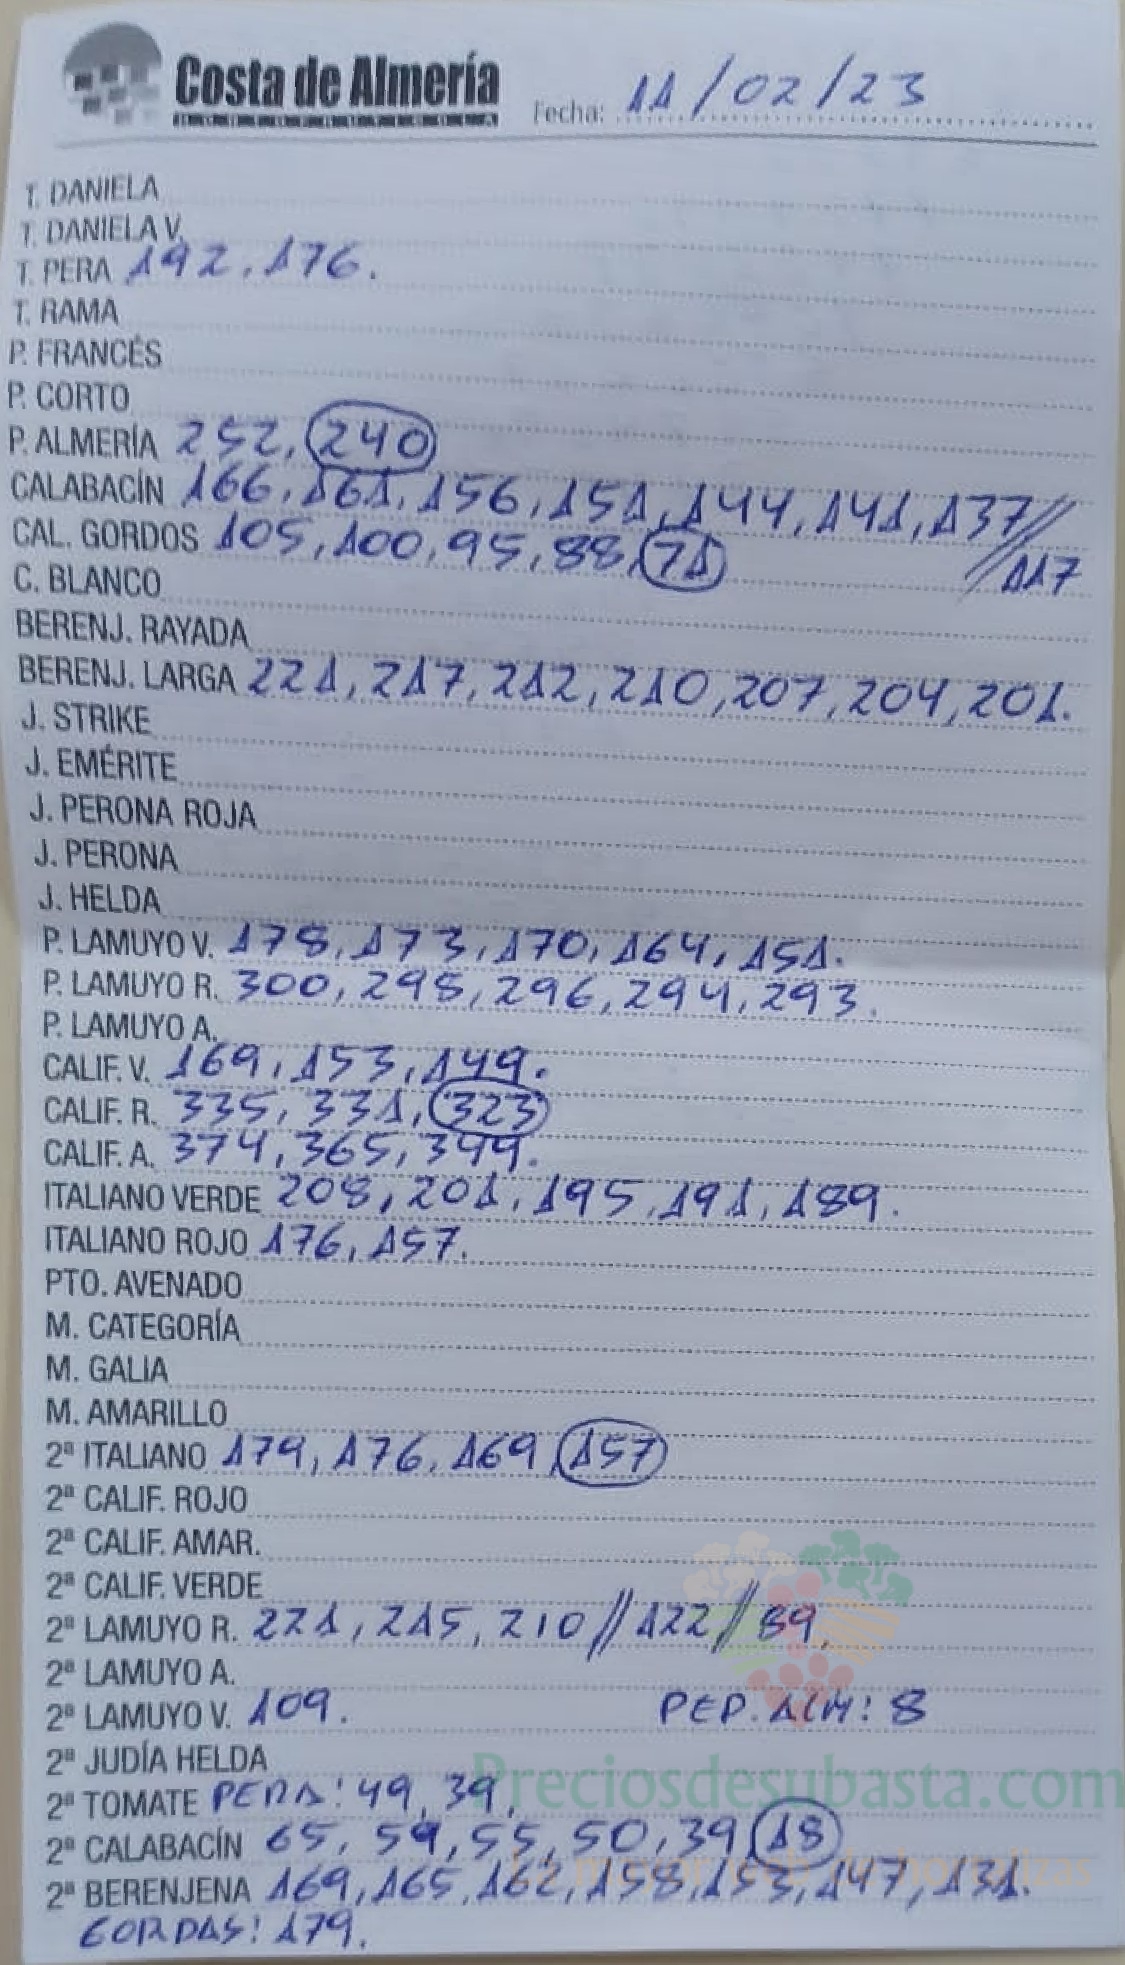 Costa de Almería
Fecha: 11/02/23
T. DANIELA
T. DANIELA V.
T. PERA 192, 176.
T. RAMA
P. FRANCÉS
P. CORTO
P. ALMERÍA 252, 240
CALABACÍN 166, 161, 156, 151, 144, 141, 137//
CAL. GORDOS 105, 100, 95, 88, 71 //117
C. BLANCO
BERENJ. RAYADA
BERENJ. LARGA 221, 217, 212, 210, 207, 204, 201.
J. STRIKE
J. EMÉRITE
J. PERONA ROJA
J. PERONA
J. HELDA
P. LAMUYO V. 178, 173, 170, 164, 151.
P. LAMUYO R. 300, 298, 296, 294, 293.
P. LAMUYO A.
CALIF. V. 169, 153, 149.
CALIF. R. 335, 331, 323
CALIF. A. 374, 365, 349.
ITALIANO VERDE 208, 201, 195, 191, 189.
ITALIANO ROJO 176, 157.
PTO. AVENADO
M. CATEGORÍA
M. GALIA
M. AMARILLO
2ª ITALIANO 179, 176, 169, 157
2ª CALIF. ROJO
2ª CALIF. AMAR.
2ª CALIF. VERDE
2ª LAMUYO R. 221, 215, 210 // 122 // 89.
2ª LAMUYO A.
2ª LAMUYO V. 109. PEP. ALM: 8
2ª JUDÍA HELDA
Preciosdesubasta.com
2ª TOMATE PERA: 49, 39,
2ª CALABACÍN 65, 59, 55, 50, 39 18
La mejor web de hortalizas
2ª BERENJENA 169, 165, 162, 158, 153, 147, 131.
GORDAS: 179.